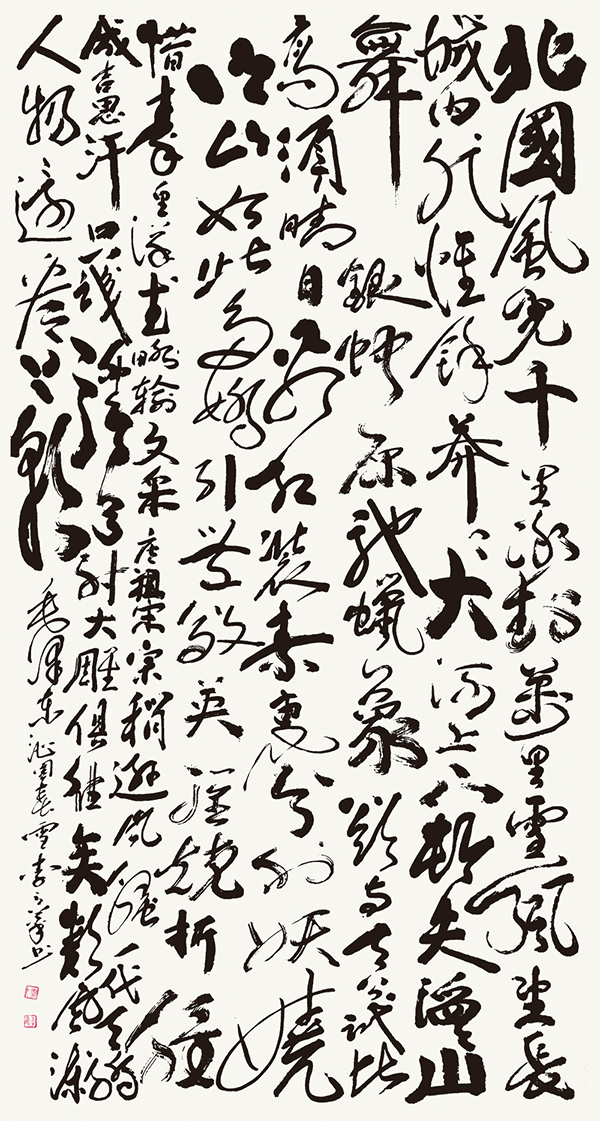 北國風光千里冰封萬里雪飄望長
城内外惟餘莽々大河上下頓失滔々山
舞銀蛇原馳蠟象欲与天公試比
高須晴日看紅裝素裹分外妖嬈
江山如此多嬌引無數英雄競折腰
惜秦皇漢武略輸文采唐祖宋宗稍遜風騷一代天驕
成吉思汗只識彎弓射大雕俱往矣數風流
人物還看今朝
毛澤東沁園春雪